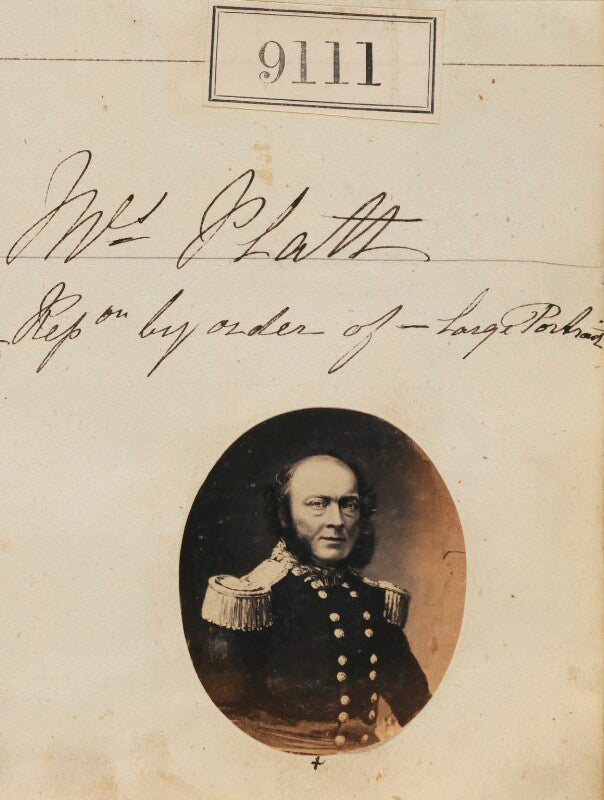 9111
Mrs Platt
Repon by order of - Large Portrait